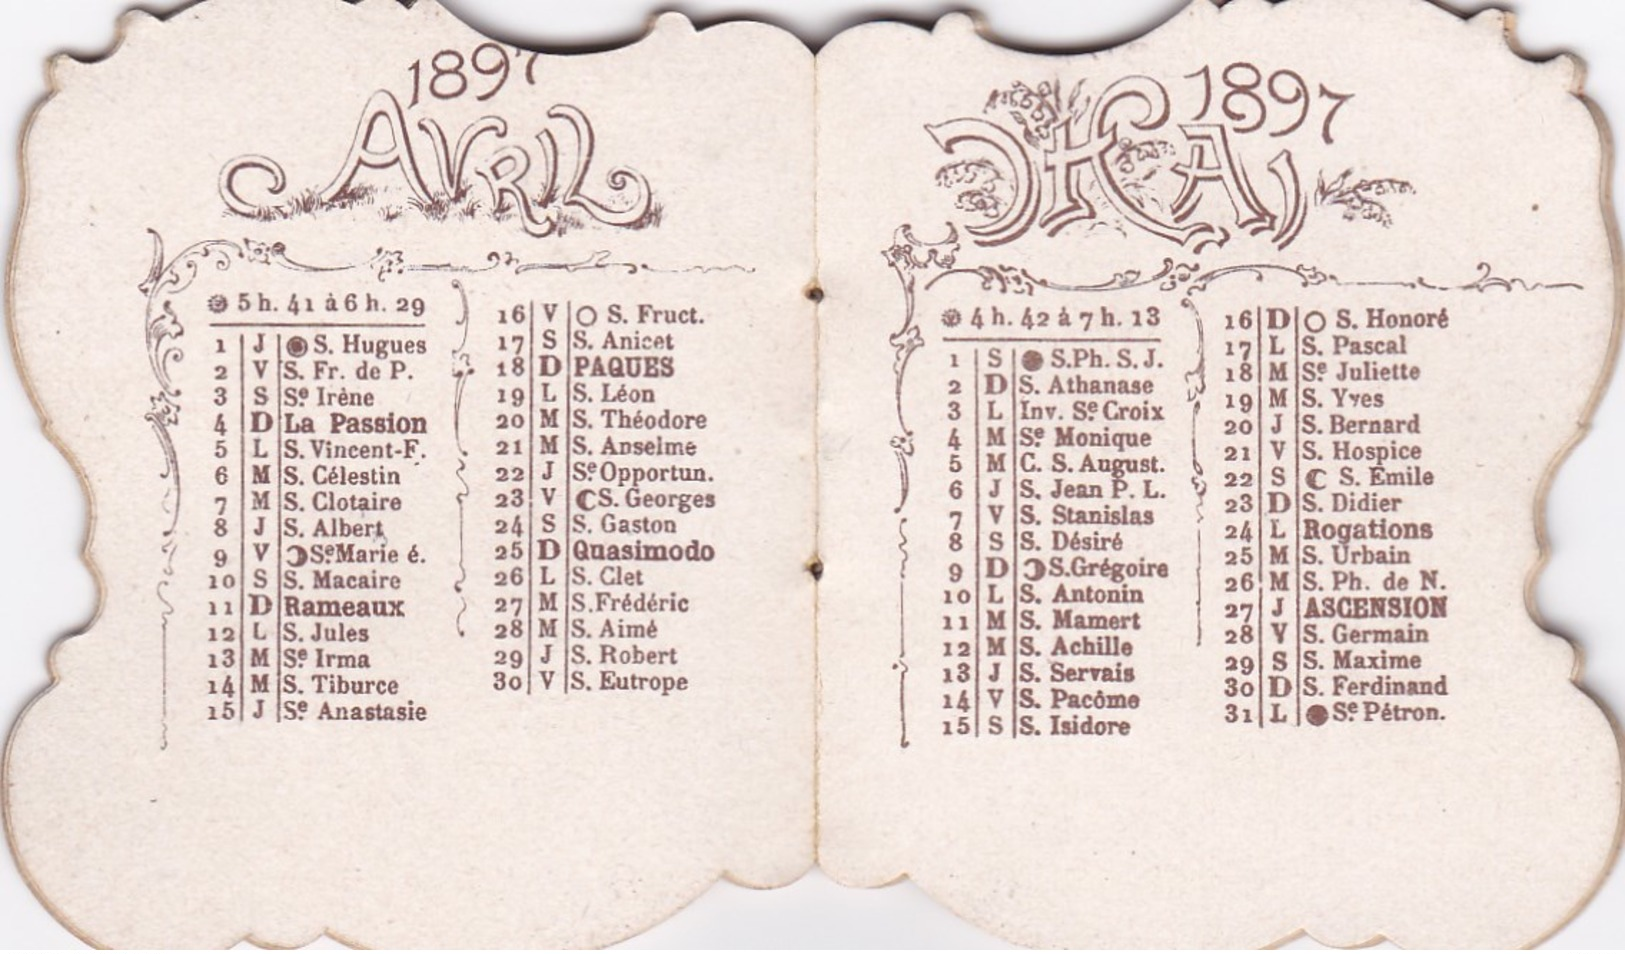 1897
AVRIL
5 h. 41 à 6 h. 29
1 J S. Hugues
2 V S. Fr. de P.
3 S Sᵉ Irène
4 D La Passion
5 L S. Vincent-F.
6 M S. Célestin
7 M S. Clotaire
8 J S. Albert
9 V Sᵉ Marie é.
10 S S. Macaire
11 D Rameaux
12 L S. Jules
13 M Sᵉ Irma
14 M S. Tiburce
15 J Sᵉ Anastasie
16 V S. Fruct.
17 S S. Anicet
18 D PAQUES
19 L S. Léon
20 M S. Théodore
21 M S. Anselme
22 J Sᵉ Opportun.
23 V S. Georges
24 S S. Gaston
25 D Quasimodo
26 L S. Clet
27 M S. Frédéric
28 M S. Aimé
29 J S. Robert
30 V S. Eutrope
1897
MAI
4 h. 42 à 7 h. 13
1 S S. Ph. S. J.
2 D S. Athanase
3 L Inv. Sᵉ Croix
4 M Sᵉ Monique
5 M C. S. August.
6 J S. Jean P. L.
7 V S. Stanislas
8 S S. Désiré
9 D S. Grégoire
10 L S. Antonin
11 M S. Mamert
12 M S. Achille
13 J S. Servais
14 V S. Pacôme
15 S S. Isidore
16 D S. Honoré
17 L S. Pascal
18 M Sᵉ Juliette
19 M S. Yves
20 J S. Bernard
21 V S. Hospice
22 S S. Emile
23 D S. Didier
24 L Rogations
25 M S. Urbain
26 M S. Ph. de N.
27 J ASCENSION
28 V S. Germain
29 S S. Maxime
30 D S. Ferdinand
31 L Sᵉ Pétron.